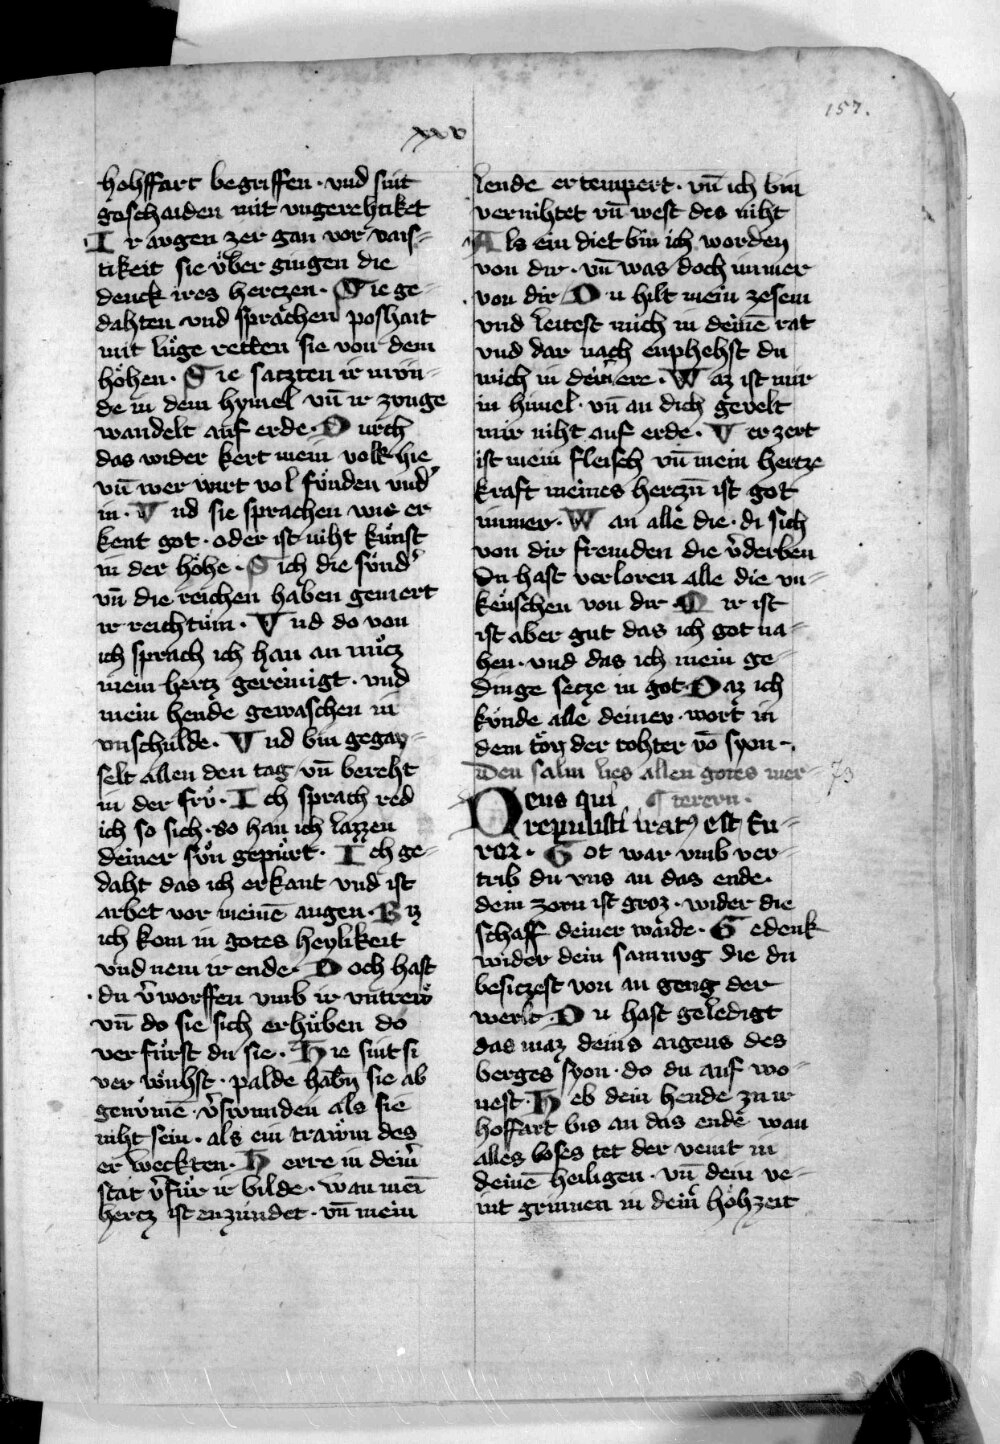 157.
xxv
hohffart begriffen · vnd sint
geschaiden mit vngerehtiket
Ir augen zer gan vor vais⸗
tikeit sie v̈ber gingen die
denck ires herczen · Sie ge⸗
dahten vnd sprachen poshait
mit lüge retten sie von dem
höhen · Sie satzten ir mün⸗
de in dem hymel vn̄ ir zunge
wandelt auf erde · Durch
das wider kert mein volk hie
vn̄ wer wirt vol funden vnd̾
in · Vnd sie sprachen wie er
kent got · oder ist niht kunst
in der höhe · Sich die sünd̾
vn̄ die reichen haben gemert
ir reichtüm · Vnd do von
ich sprach ich han an nücz
mein hertz gereinigt · vnd
mein hende gewaschen in
vnschulde · Vnd bin gegay⸗
selt allen den tag vn̄ bereht
in der frü · Ich sprach red
ich so sich · so han ich lazzen
deiner sün gepürt · Ich ge⸗
daht das ich erkant vnd ist
arbet vor meinē augen · Biz
ich kom in gotes heylikeit
vnd nem ir ende · Doch hast
du v̾worffen vmb ir vntrew
vn̄ do sie sich erhüben do
verfürst du sie · Hie sint si
ver wühst · palde habn̄ sie ab
genümē · v̾swunden als sie
niht sein · als ein trawm des
er weckten · Herre in dein̾
stat v̾für ir bilde · wan mei
hertz ist enzundet · vn̄ mein
lende ertempert · vn̄ ich bin
vernihtet vn̄ west des niht
Als ein diet bin ich worden
von dir · vn̄ was doch immer
von dir Du hilt mein zesem
vnd leitest mich in deinē rat
vnd dar nach enphehst du
mich in dein̾ ere · Waz ist mir
in himel · vn̄ an dich gevelt
mir niht auf erde · Verzert
ist mein fleisch vn̄ mein hertze
kraft meines herczn̄ ist got
immer · Wan alle die · di sich
von dir fremden die v̾derben
Du hast verloren alle die vn⸗
keüschen von dir · Mir ist
ist aber gut das ich got na⸗
hen · vnd das ich mein ge⸗
dinge setze in got · Daz ich
künde alle deiner · wort in
dem tör der tohter vō syon ·
Den salm lies allen gotes mer⸗ 73
Deus qui ¶ terern ·
repulisti irat⁹ est fu⸗
ror · Got war vmb ver⸗
trib du vns an das ende ·
dein zorn ist groz · wider die
schaff deiner waide · Gedenk
wider dein samnvg die du
besiczest von an geng der
werlt · Du hast geledigt
das maz deins aigens des
berges syon · do du auf wo⸗
nest · Heb dein hende zu ir
hoffart bis an das ende wan
alles boses tet der veint in
deinē heiligen · vn̄ dem ve⸗
int grinnen in dein̾ höhzeit